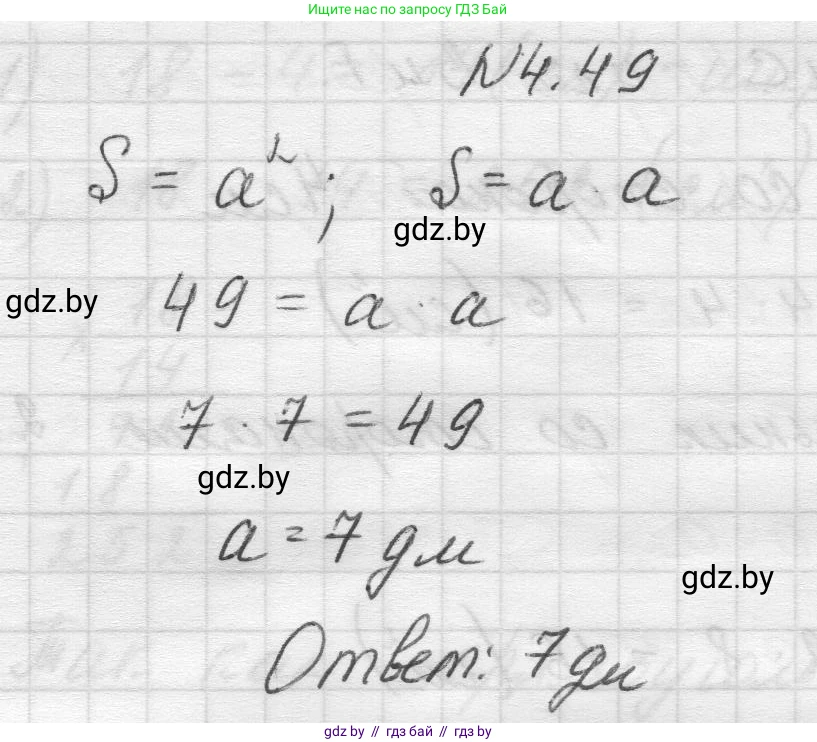 Ищите нас по запросу ГДЗ Бай
N4.49
S = a²; S = a · a
gdz.by
gdz.by
49 = a · a
7 · 7 = 49
gdz.by
a = 7 дм
gdz.by
Ответ: 7 дм
gdz.by // гдз бай // гдз by